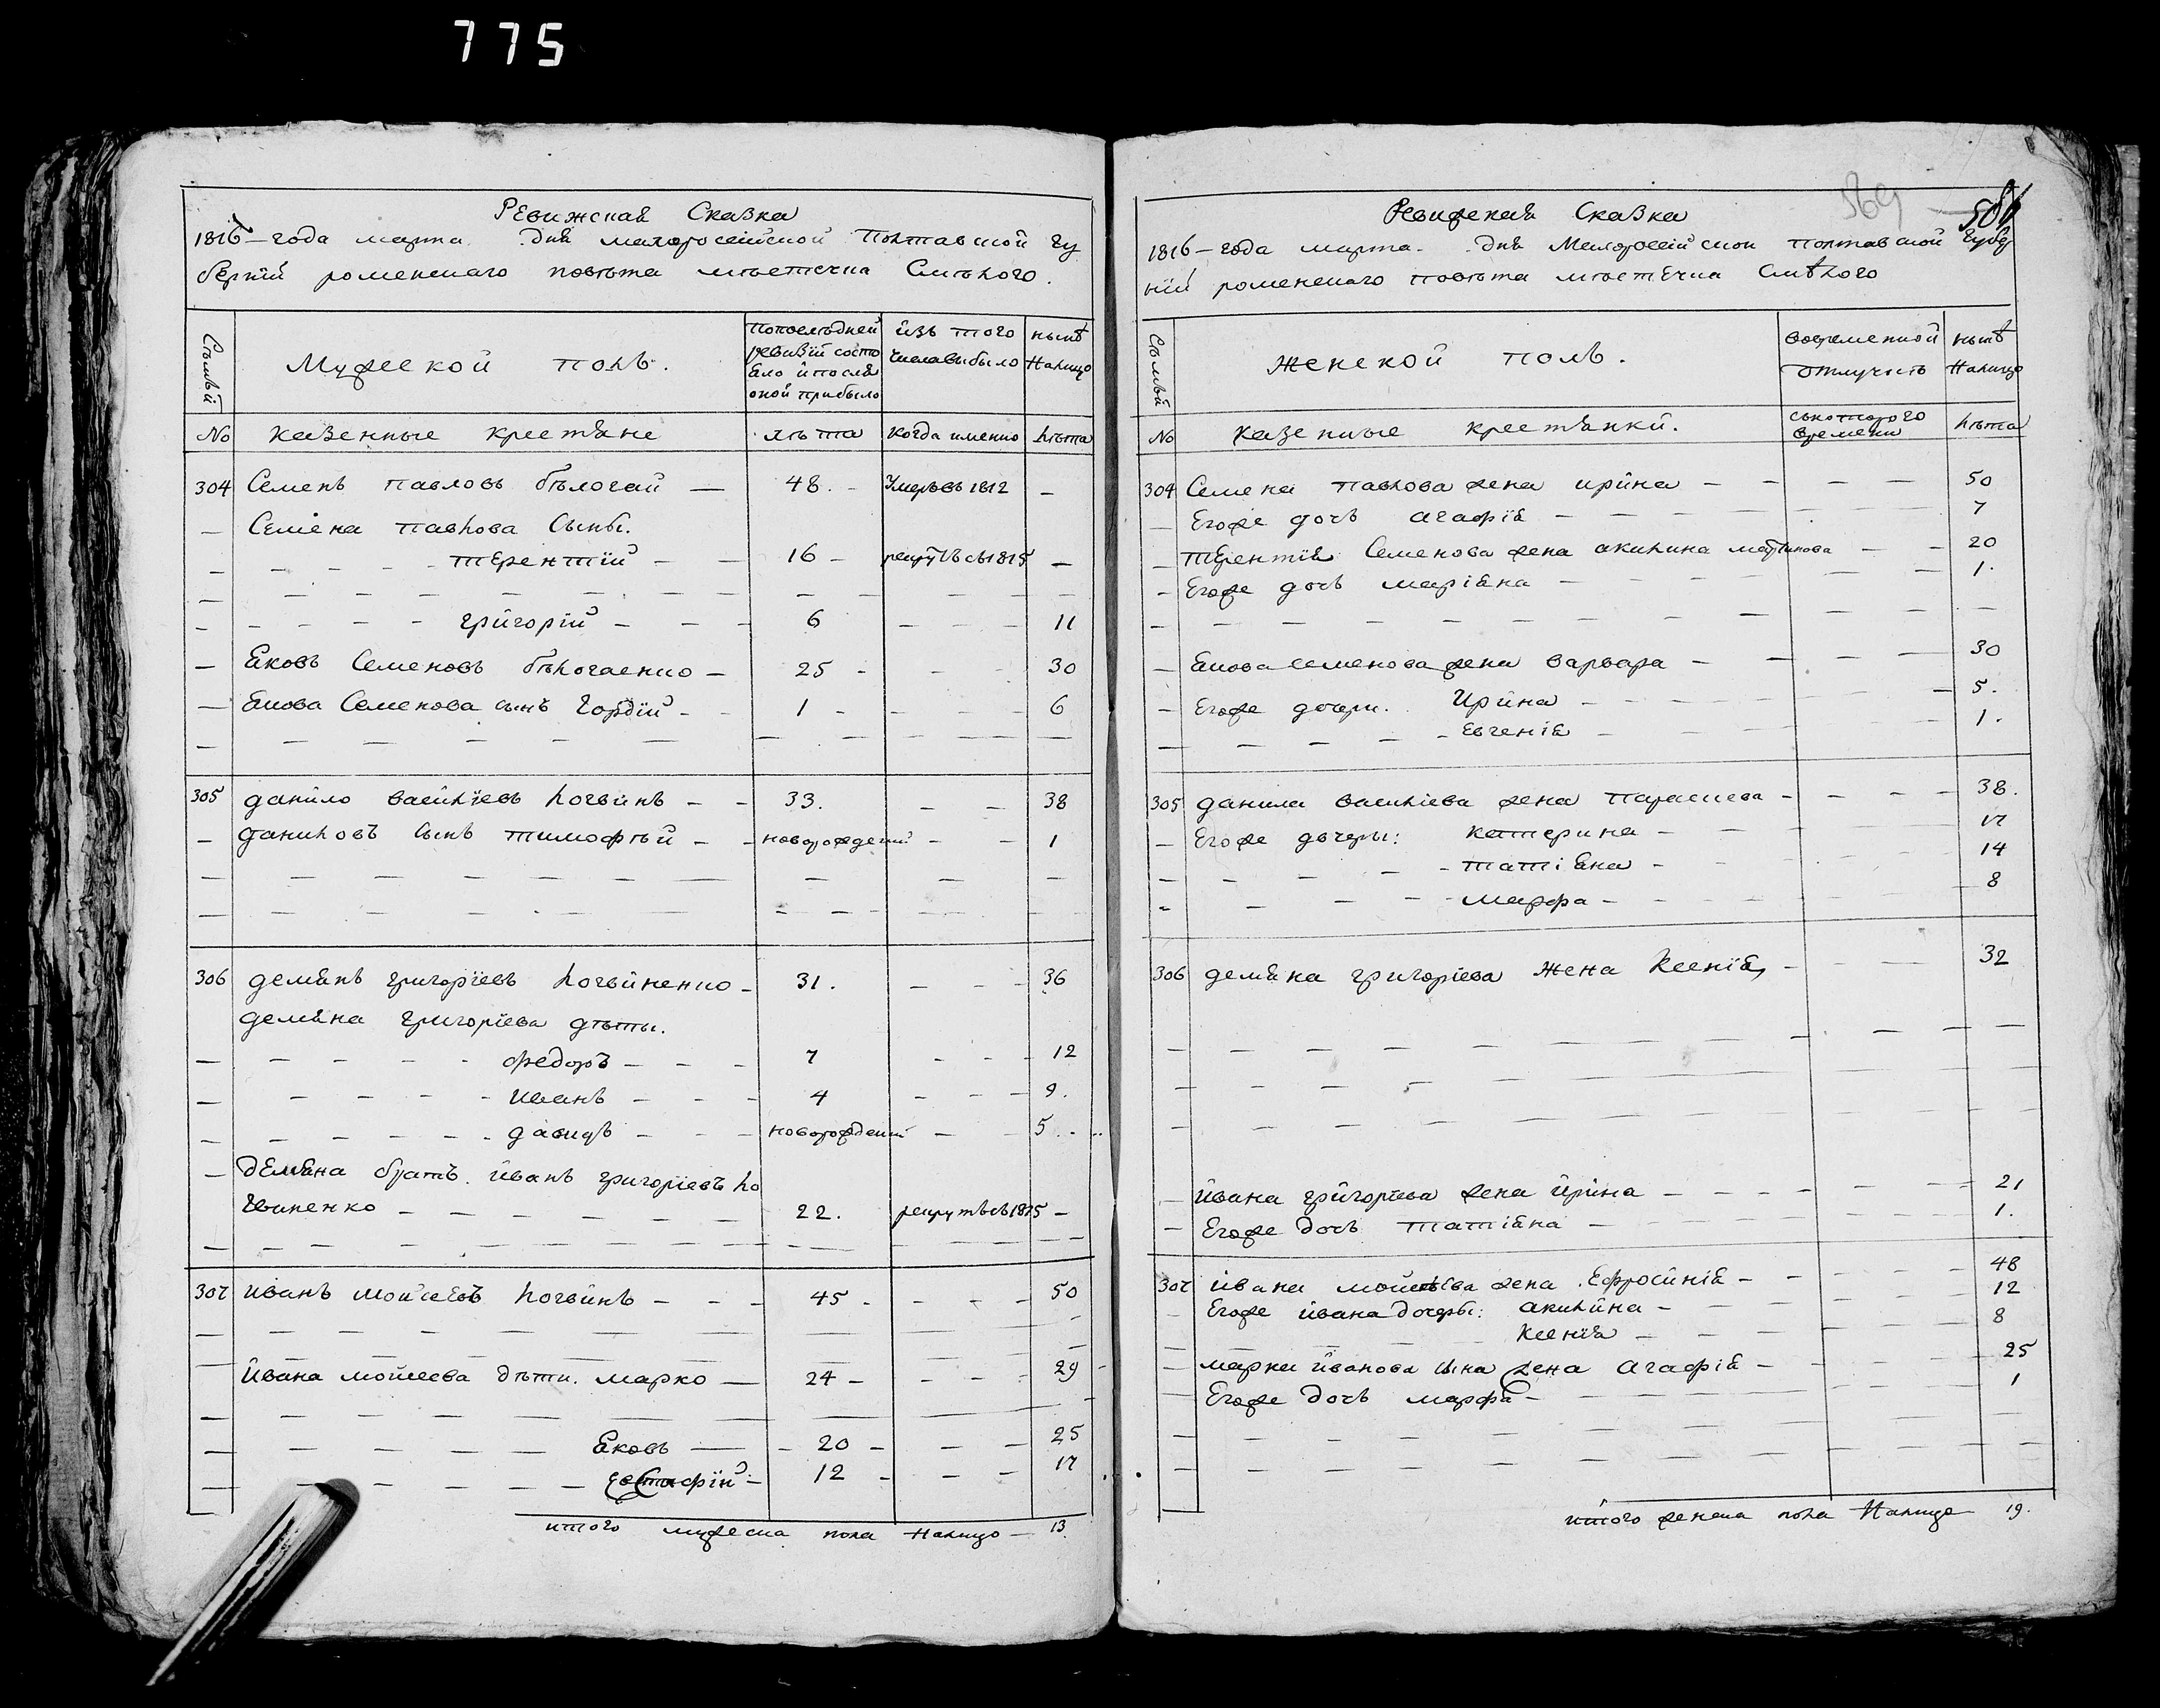 775
Ревижская Сказка
1816-года марта дня малоросейской Полтавской гу
берній роменскаго повѣта мѣстечка Смѣлого.
Семьи
Мужеской полъ.
попослѣдней
ревизіи состо
яло и после
оной прибыло
изъ того
числа выбыло
нынѣ
Налицо
No казенные крестяне лѣта когда именно лѣта
304 Семенъ Павловъ бѣлогай — 48. - Умеръ въ 1812 —
— Семена Павлова Сыны.
— Терентій — 16 — рекрутъ съ 1815 —
— Григорій — 6 — 11
— Яковъ Семеновъ бѣлогаенко — 25 — 30
— Якова Семенова сынъ Гордій — 1 — 6
305 данило васильевъ логвинъ — 33. — 38
— даниловъ Сынъ тимофѣй — новорожденій — 1
306 демянъ григоріевъ логвиненко — 31. — 36
демяна григоріева дѣты.
— федоръ — 7 — 12
— иванъ — 4 — 9.
— давидъ — новорожденій — 5
— демяна братъ. иванъ григоріевъ ло
гвиненко — 22. рекрутъ съ 1815 —
307 иванъ мойсеевъ логвинъ — 45 — 50
ивана мойсеева дѣти. марко — 24 — 29
— Яковъ — 20 — 25
— Евстафій — 12 — 17
итого мужеска пола Налицо — 13.
569 586
Ревижская Сказка
1816-года марта дня Малоросейской полтавской губер
ній роменскаго повѣта мѣстечка Смѣлого
Семьи
Женской полъ.
вовременной
отлучкѣ
нынѣ
Налицо
No казенные крестянки.
съкоторого
времени
лѣта
304 Семена Павлова жена ирина — 50
— Егоже дочь агафія — 7
— Терентія Семенова жена акилина мартинова — 20
— Егоже дочь маріяна — 1.
— Якова семенова жена варвара — 30
— Егоже дочери. Ирина — 5.
— Евгенія — 1.
305 данила василіева жена параскева — 38.
— Егоже дочеры: катерина — 17
— татіяна — 14
— марфа — 8
306 демяна григоріева жена Ксенія — 32
— ивана григоріева жена ирина — 21
— Егоже дочь татіяна — 1.
307 ивана мойсеіва жена Ефросинія — 48
— Егоже ивана дочеры: акилина — 12
— Ксенія — 8
— марка иванова сына жена агафія — 25
— Егоже дочь марфа — 1
итого женска пола Налицо 19.